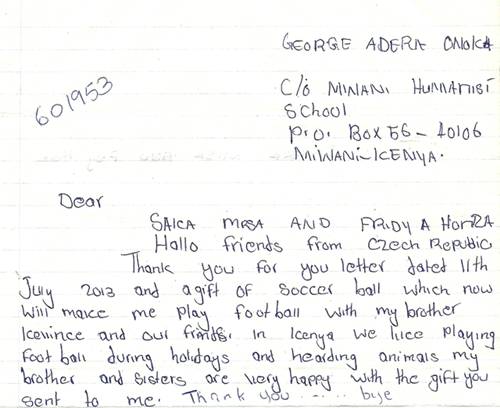 GEORGE ADERA ONOKA
601953
C/o MINANI HUMANIST
School
P.O. Box 56 - 40106
MIWANI-KENYA.
Dear
SAICA MASA AND FRIDY A HORRA
Hallo friends from CZech Republic
Thank you for you letter dated 11th
July 2013 and a gift of soccer ball which now
will make me play football with my brother
Kevince and our friends. In Kenya we like playing
foot ball during holidays and hearding animals my
brother and sisters are very happy with the gift you
sent to me. Thank you ...... bye